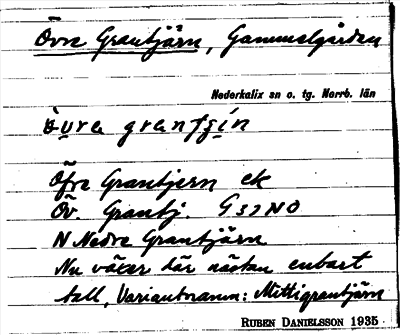 Övre Grantjärn, Gammelgården
Nederkalix sn o. tg. Norrb. län
Öfre Grantjern ek
Öv. Grantj. G 37 NO
N Nedre Grantjärn
Nu växer där nästan enbart
tall, Variantnamn: Mittigrantjärn
RUBEN DANIELSSON 1935